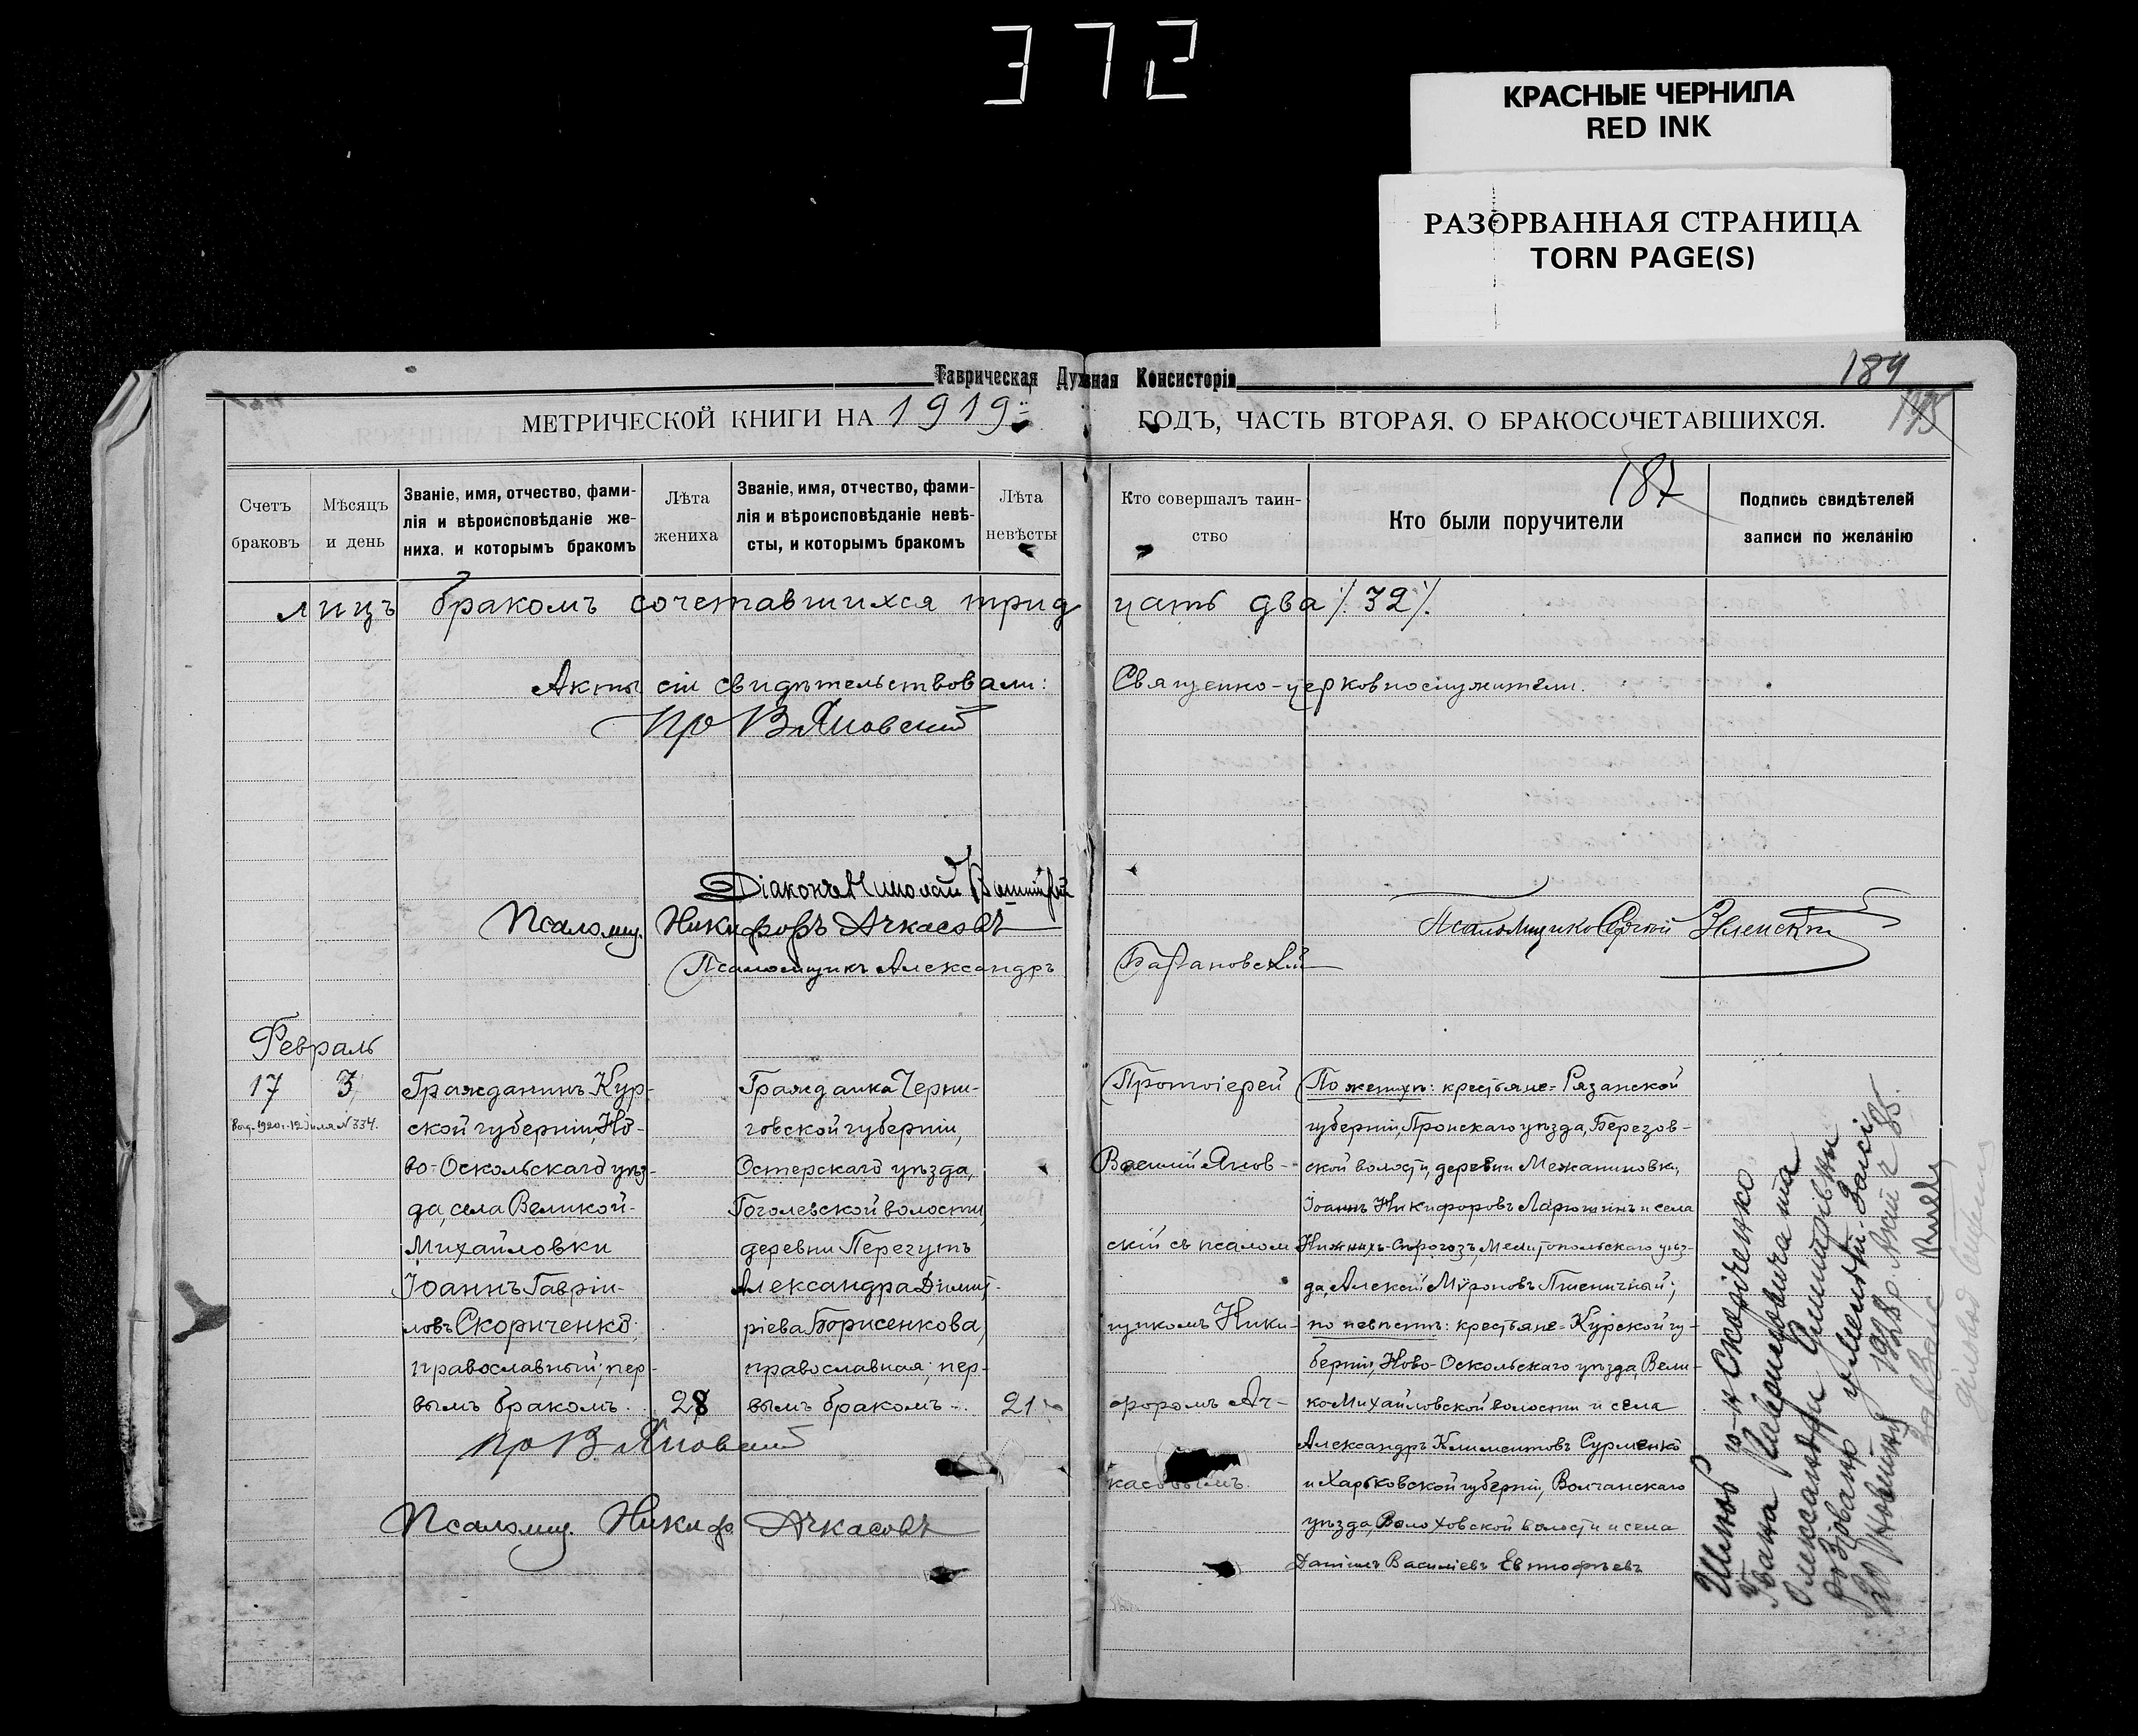 372
КРАСНЫЕ ЧЕРНИЛА
RED INK
РАЗОРВАННАЯ СТРАНИЦА
TORN PAGE(S)
Таврическая Духовная Консисторія
184
МЕТРИЧЕСКОЙ КНИГИ НА 1919
ГОДЪ, ЧАСТЬ ВТОРАЯ, О БРАКОСОЧЕТАВШИХСЯ.
187
Счетъ
браковъ
Мѣсяцъ
и день
Званіе, имя, отчество, фами-
лія и вѣроисповѣданіе же-
ниха, и которымъ бракомъ
Лѣта
жениха
Званіе, имя, отчество, фами-
лія и вѣроисповѣданіе невѣ-
сты, и которымъ бракомъ
Лѣта
невѣсты
Кто совершалъ таин-
ство
Кто были поручители
Подпись свидѣтелей
записи по желанію
лицъ бракомъ сочетавшихся трид цать два /32/.
Акты сіи свидѣтельствовали: Священно-церковнослужители.
Пр В Яновскій
Діаконъ Николай
Псаломщ. Никифоръ Ачкасовъ
Псаломщикъ Сергій
Псаломщикъ Александръ Барановскій
Февраль
17
3
Выд. 1920 г. 12 № 334.
Гражданинъ Кур-
ской губерніи, Но-
во-Оскольскаго уѣз-
да, села Великой-
Михайловки
Іоаннъ Гавріи-
ловъ Скориченко,
православный; пер-
вымъ бракомъ.
28
Гражданка Черни-
говской губерніи,
Остерскаго уѣзда,
Гоголевской волости,
деревни Перегутъ
Александра Димит-
ріева Борисенкова,
православная; пер-
вымъ бракомъ.
21
Пр В. Яновскій
Псаломщ. Никиф. Ачкасовъ
Протоіерей
Василій Янов-
скій съ псалом
щикомъ Ники-
форомъ Ач-
касовымъ.
По женихѣ: крестьяне= Рязанской
губерніи, Пронскаго уѣзда, Березов-
ской волости, деревни Межаниновки,
Іоаннъ Никифоровъ Ларюшинъ и села
Нижнихъ-Сѣрогозъ, Мелитопольскаго уѣз-
да, Алексій Мѵроновъ Пшеничный;
по невѣстѣ: крестьяне= Курской гу-
берніи, Ново-Оскольскаго уѣзда, Вели-
ко Михайловской волости и села
Александръ Климентовъ Сурменко
и Харьковской губерніи, Волчанскаго
уѣзда, Волоховской волости и села
Даніилъ Василіевъ Евтіофѣевъ
Шлюб Скоріченко
Івана Гавриловича та
Олександри Дмитрівни
розірвано у Загсі
1928 р.